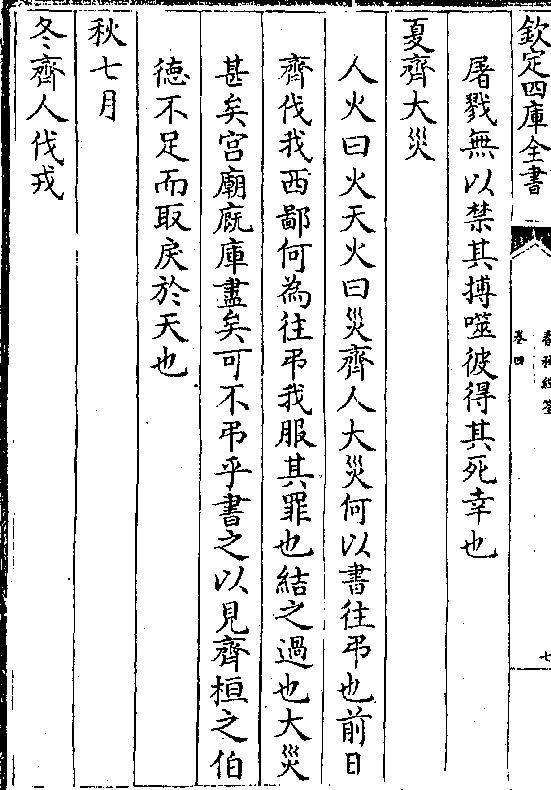 欽定四庫全書
春秋經筌
卷四
七
屠戮無以禁其搏噬彼得其死幸也
夏齊大災
人火曰火天火曰災齊人大災何以書往弔也前日
齊伐我西鄙何為往弔我服其罪也結之過也大災
甚矣宫廟廐庫盡矣可不弔乎書之以見齊桓之伯
徳不足而取戾於天也
秋七月
冬齊人伐戎